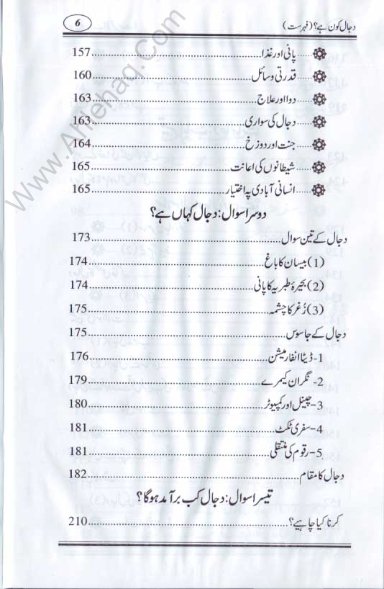 دجال کون ہے؟ (فہرست) 6
پانی اور غذا 157
قدرتی وسائل 160
دوا اور علاج 163
دجال کی سواری 163
جنت اور دوزخ 164
شیطانوں کی اعانت 165
انسانی آبادی پہ اختیار 165
دوسرا سوال: دجال کہاں ہے؟
دجال کے تین سوال 173
(1) بیسان کا باغ 174
(2) بحیرۂ طبریہ کا پانی 174
(3) زُغر کا چشمہ 175
دجال کے جاسوس 175
1- ڈیٹا انفارمیشن 176
2- نگران کیمرے 179
3- چینل اور کمپیوٹر 180
4- سفری ٹکٹ 181
5- رقوم کی منتقلی 181
دجال کا مقام 182
تیسرا سوال: دجال کب برآمد ہوگا؟
کرنا کیا چاہیے؟ 210
Www.Ahlehaq.Com